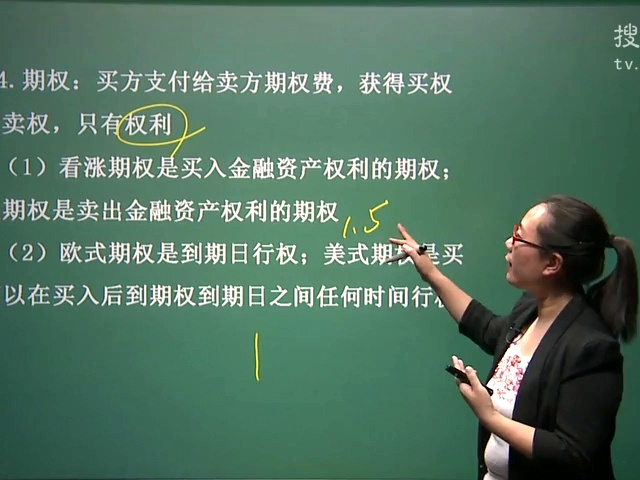 4.期权：买方支付给卖方期权费，获得买权
卖权，只有权利
（1）看涨期权是买入金融资产权利的期权；
期权是卖出金融资产权利的期权
1.5
（2）欧式期权是到期日行权；美式期权是买
以在买入后到期权到期日之间任何时间行权
搜
tv.